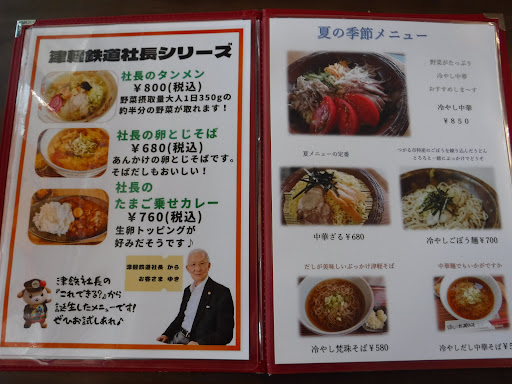 津軽鉄道社長シリーズ
社長のタンメン
￥800(税込)
野菜摂取量大人1日350gの
約半分の野菜が取れます！
社長の卵とじそば
￥680(税込)
あんかけの卵とじそばです。
そばだしもおいしい！
社長の
たまご乗せカレー
￥760(税込)
生卵トッピングが
好みだそうです♪
津軽鉄道社長 から
お客さま ゆき
津鉄社長の
「これできる?」から
誕生したメニューです!
ぜひお試しあれ♪
夏の季節メニュー
野菜がたっぷり
冷やし中華
おすすめしま～す
冷やし中華
￥850
夏メニューの定番
中華ざる￥680
つがる市特産のごぼうを練り込んだうどん
とろろと一緒にぶっかけてどうぞ
冷やしごぼう麺￥700
だしが美味しいぶっかけ津軽そば
冷やし梵珠そば￥580
中華麺でもいかがですか
冷やしだし中華そば